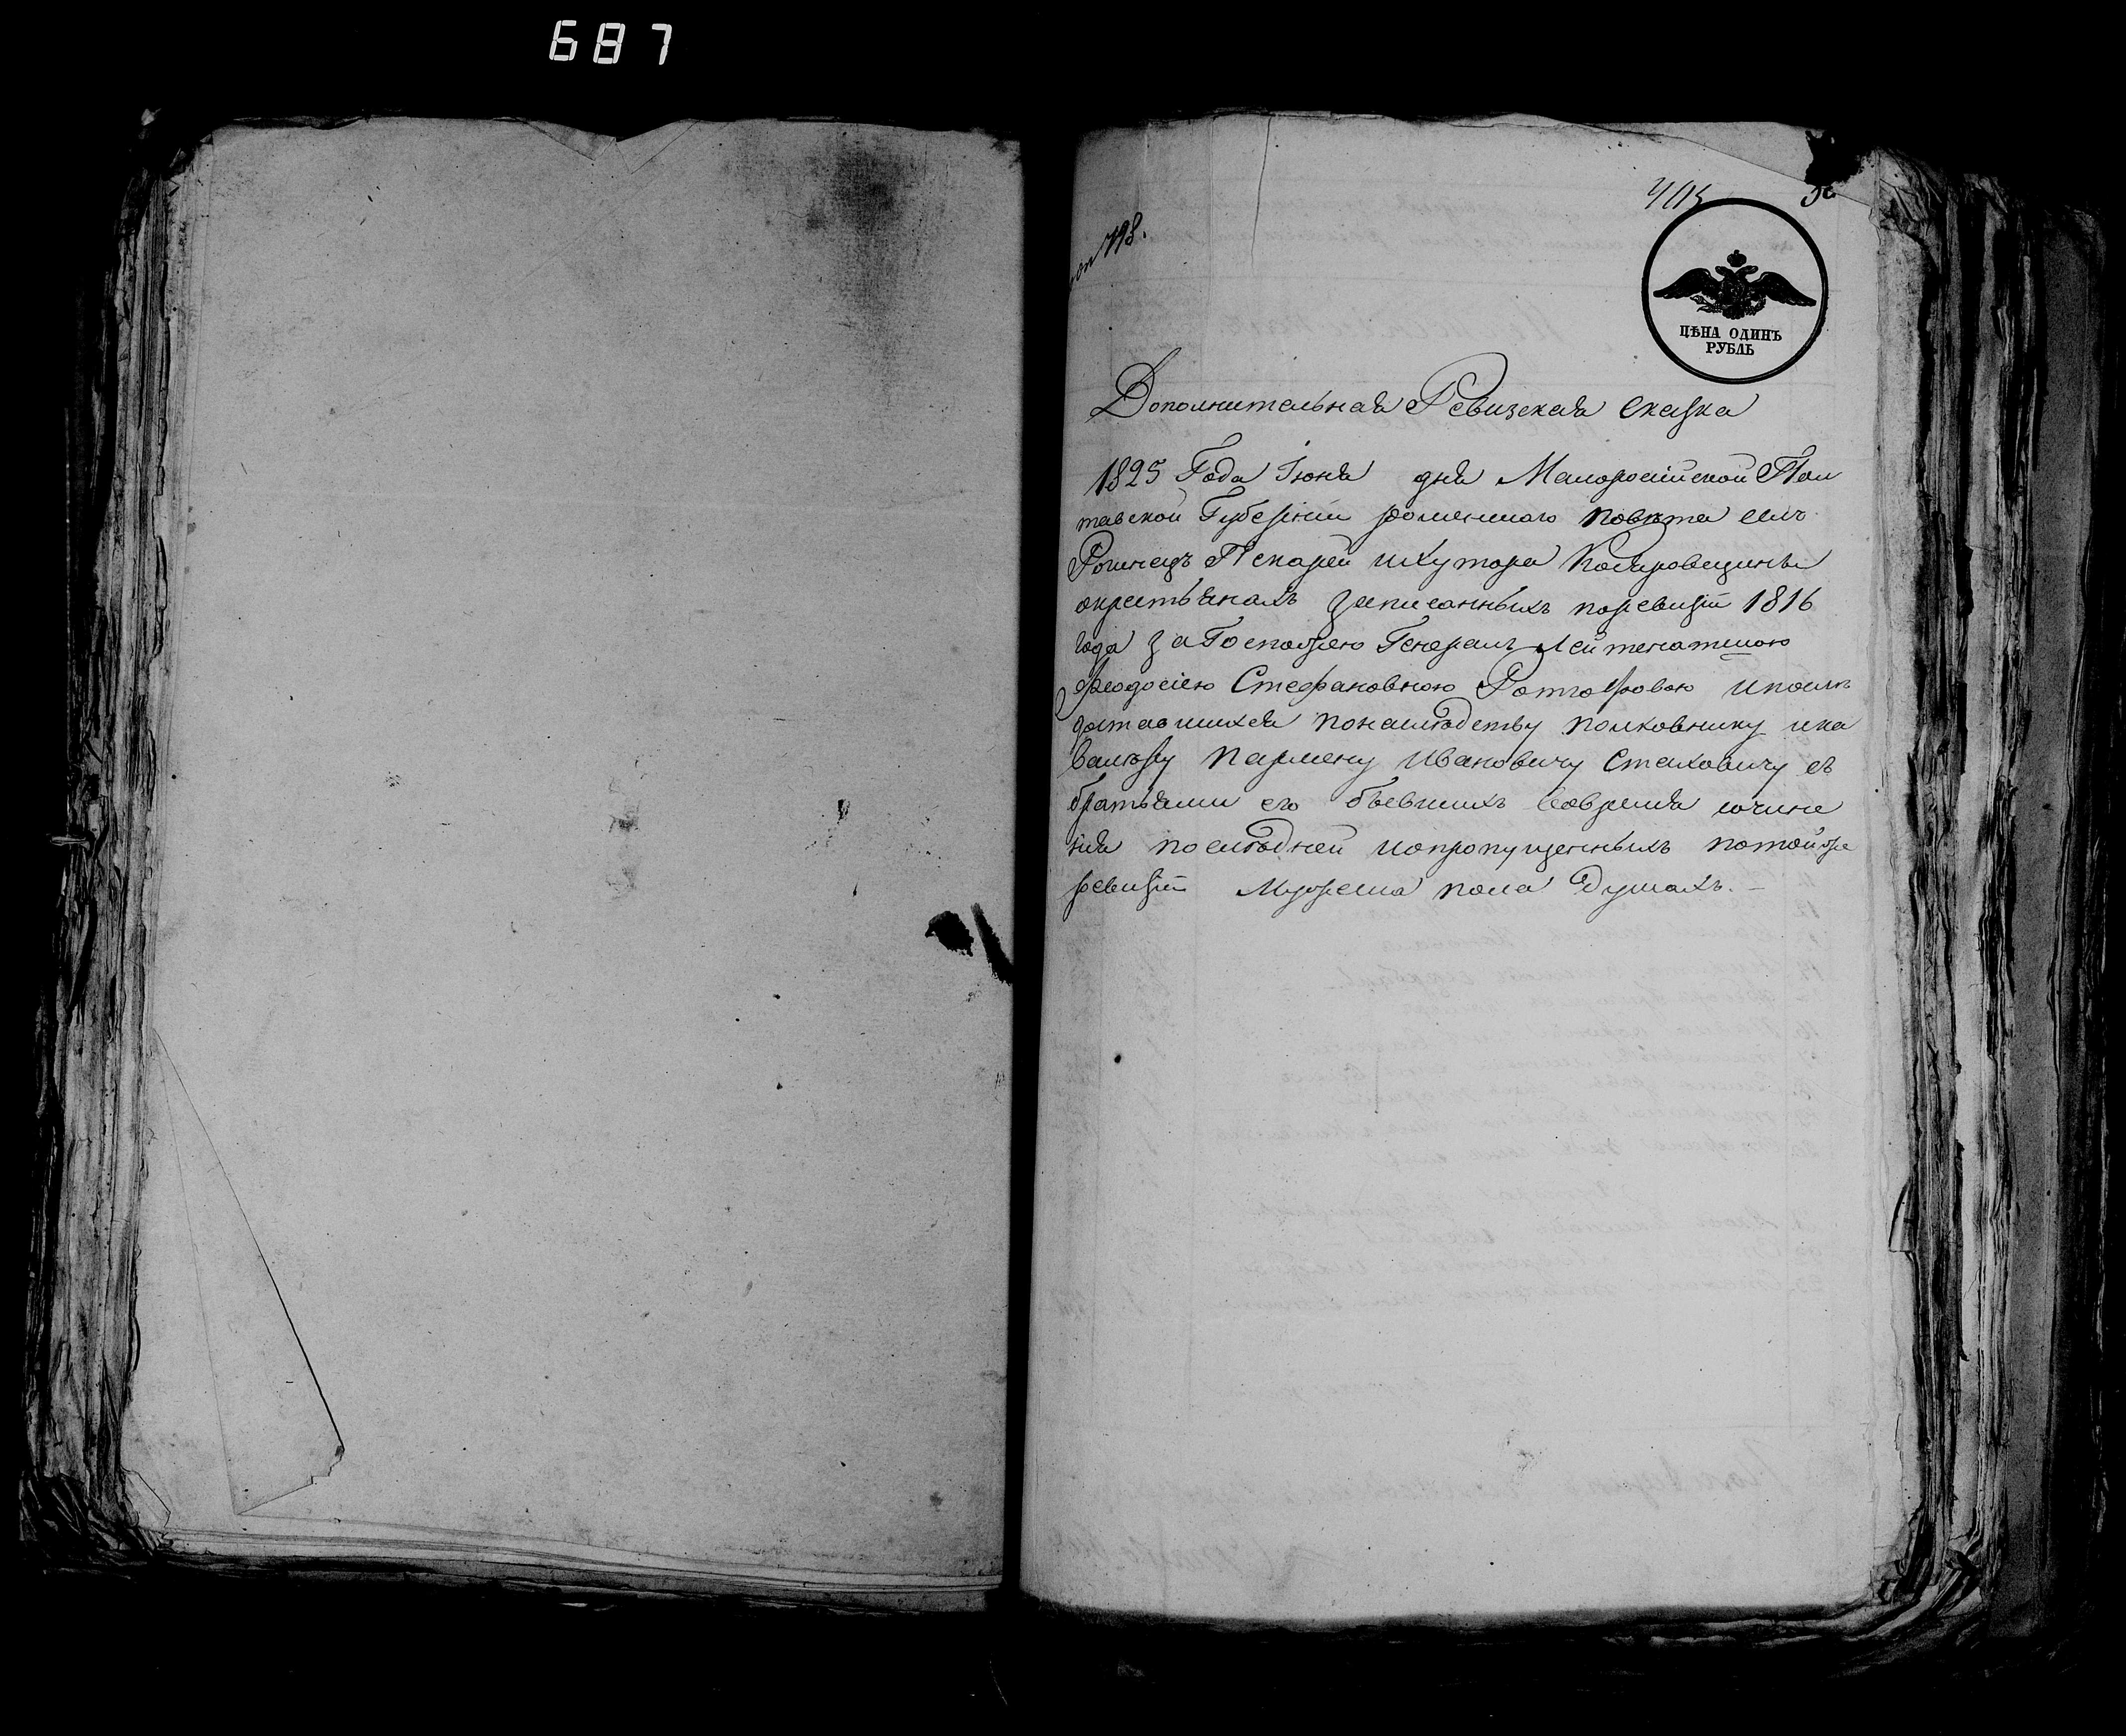 687
798.
ЦѢНА ОДИНЪ
РУБЛЬ
Дополнительная Ревизская сказка
1825 Года Іюня дня Малороссійской Пол
тавской Губерніи роменского повѣта селъ
Рогинецъ Пекарей ихутора
окрестьянахъ записанныхъ поревизіи 1816
года за Госпожею Генералъ Лейтенатшою
Феодосіею Стефановною ипосле
доставшихся понаслѣдству полковнику ика
валѣру Пармену Ивановичу Стаховичу съ
братьями его бывшихъ вовремя сочине
ния последней ипропущенныхъ потойже
ревизіи Мужеска пола Душахъ.